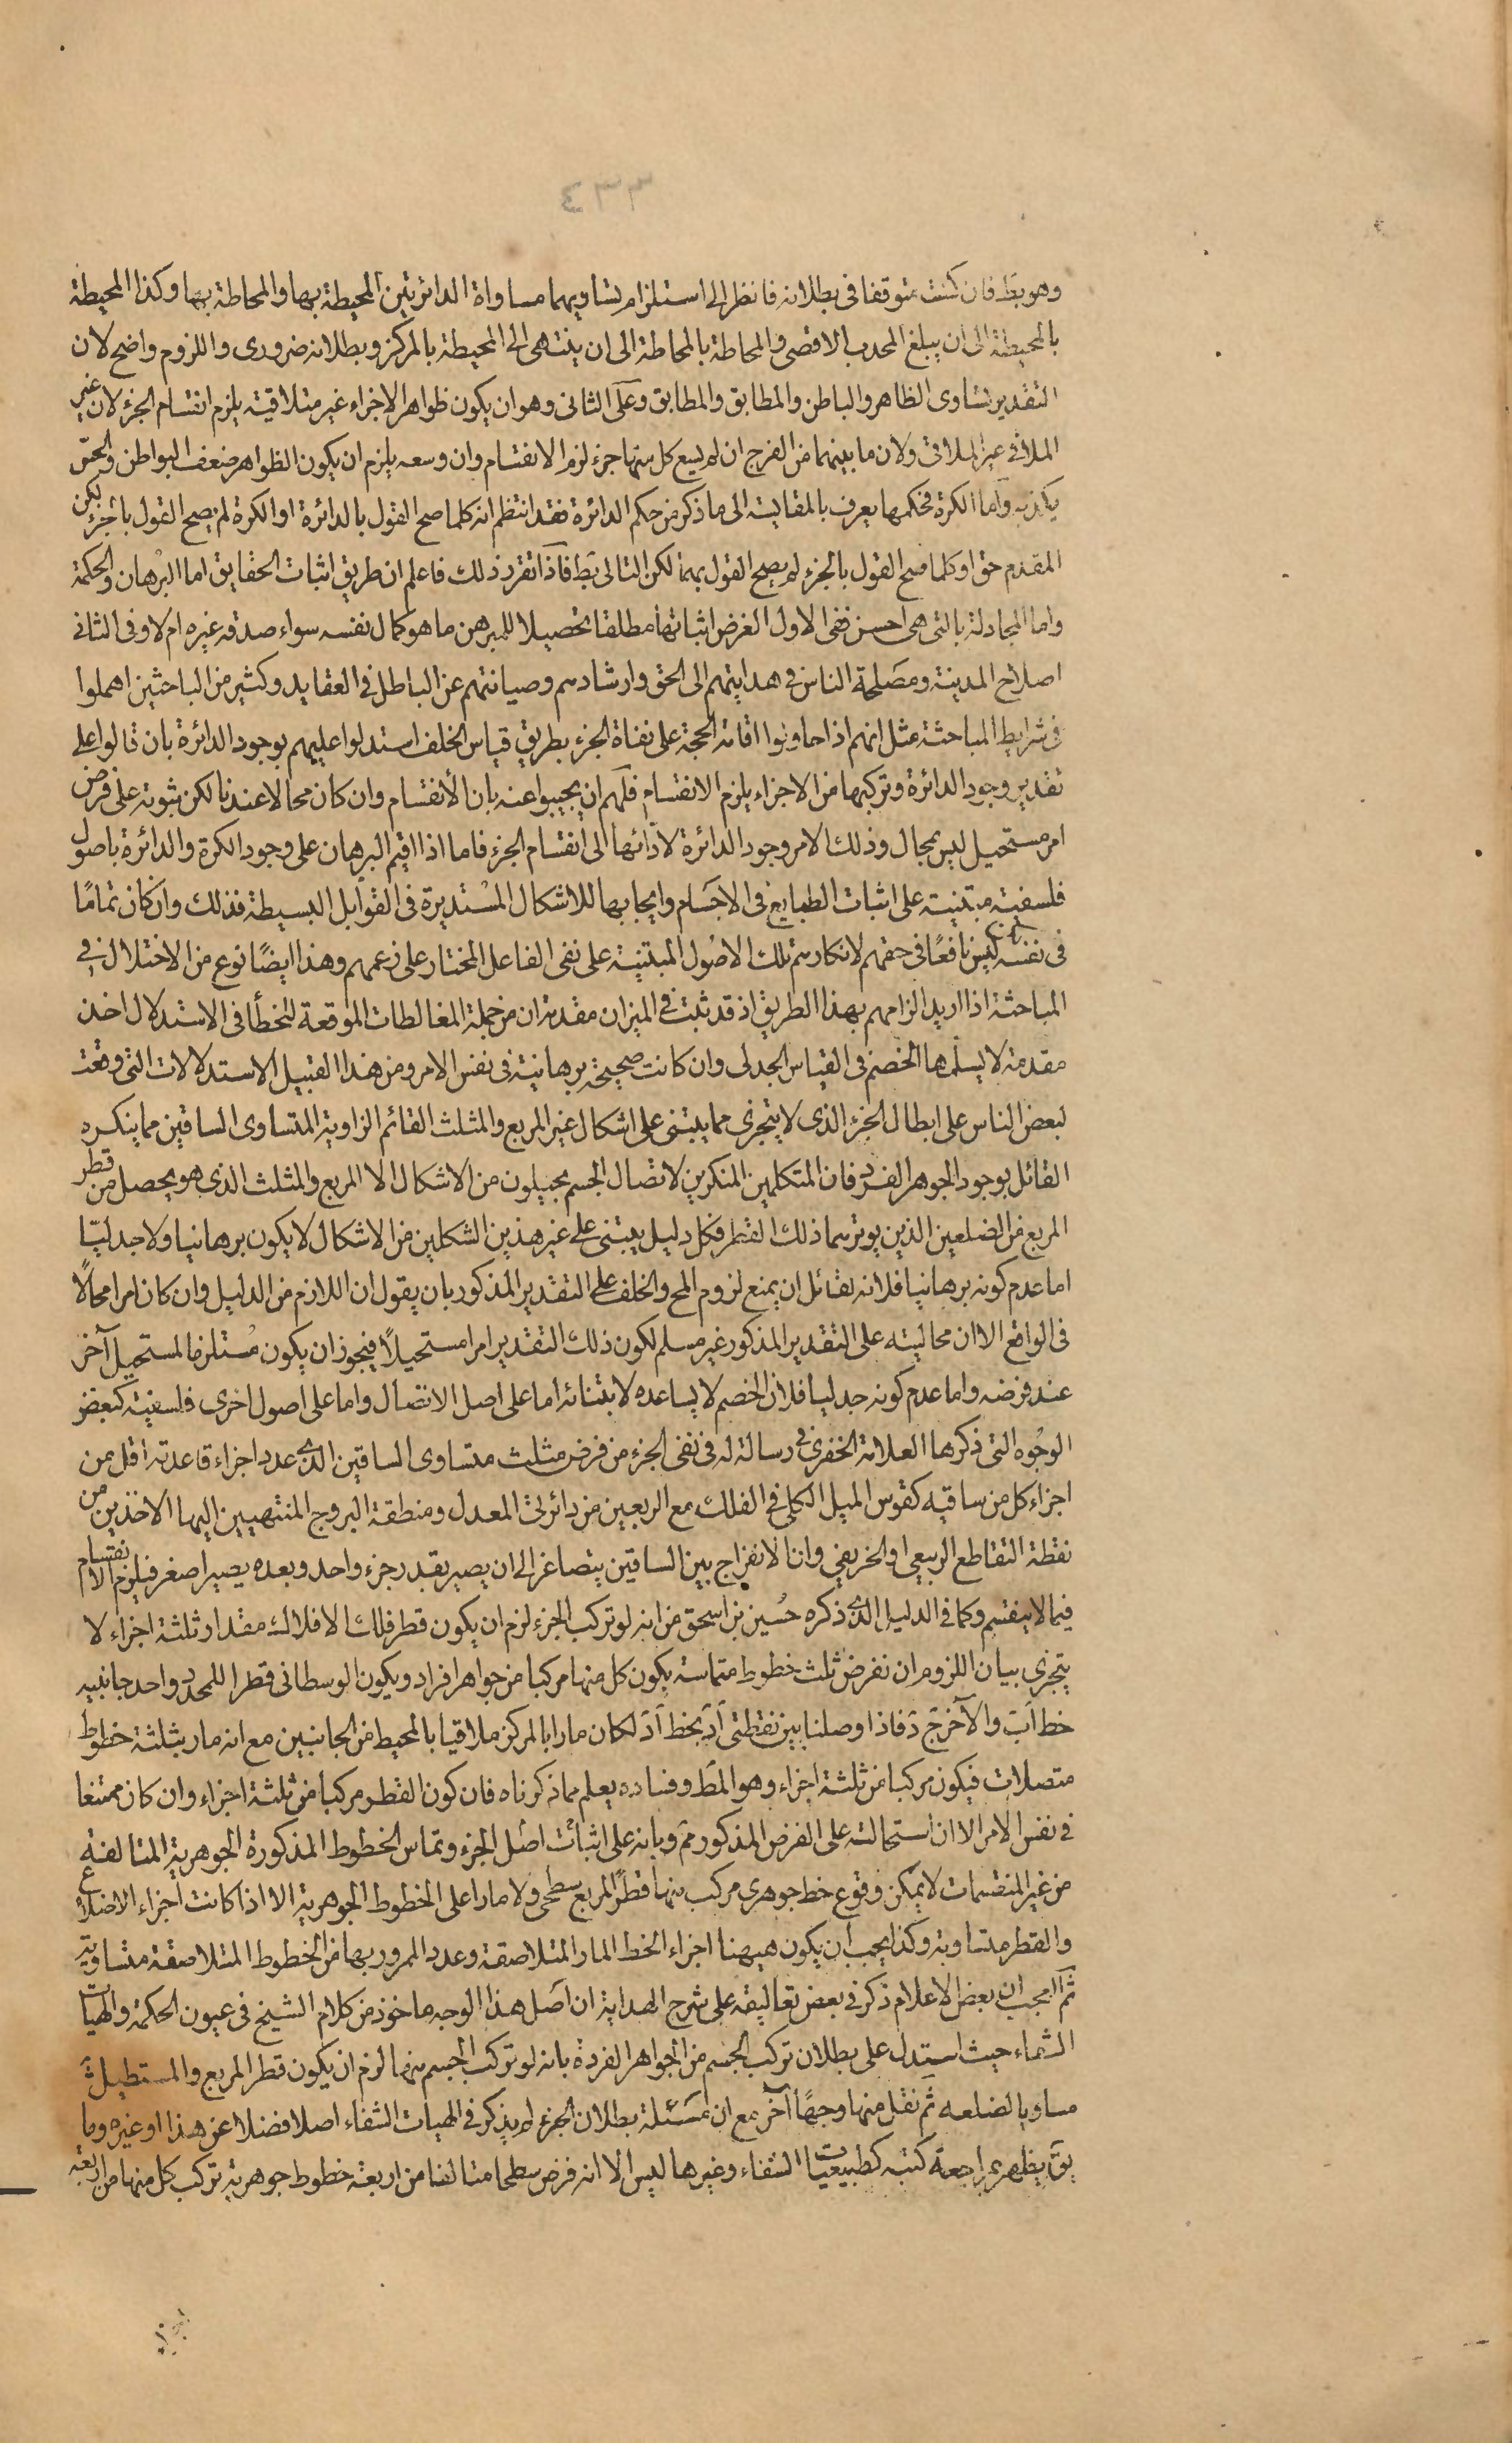 ٤٣٣
وهو بط فان كنت متوقفا فى بطلانه فانظر الى استلزام تساويهما مساواة الدائرتين المحيطة بها والمحاطة بها وكذا المحيطة
بالمحيطة الى ان يبلغ المحدب الاقصى والمحاطة بالمحاطة الى ان ينتهى الى المحيطة بالمركز وبطلانه ضرورى واللزوم واضح لان
التقدير تساوى الظاهر والباطن والمطابق والمطابق وعلى الثانى وهو ان يكون ظواهر الاجزاء غير متلاقية يلزم انقسام الجزء لان غير
الملاقى غير الملاقى ولان ما بينهما من الفرج ان لم يسع كل منها جزء لزم الانقسام وان وسعه يلزم ان يكون الظواهر ضعف البواطن والحس
يكذبه واما الكرة فحكمها يعرف بالمقايسة الى ما ذكر من حكم الدائرة فقد انتظم انه كلما صح القول بالدائرة او الكرة لم يصح القول بالجزء لكن
المقدم حق او كلما صح القول بالجزء لم يصح القول بهما لكن التالى بط فاذا تقرر ذلك فاعلم ان طريق اثبات الحقايق اما البرهان والحكمة
واما المجادلة بالتى هى احسن ففى الاول الغرض اثباتها مطلقا تحصيلا للمبرهن ما هو كمال نفسه سواء صدقه غيره ام لا وفى الثانى
اصلاح المدينة ومصلحة الناس فى هدايتهم الى الحق وارشادهم وصيانتهم عن الباطل فى العقايد وكثير من الباحثين اهملوا
فى شرايط المباحثة مثل انهم اذا حاولوا اقامة الحجة على نفاة الجزء بطريق قياس الخلف استدلوا عليهم بوجود الدائرة بان قالوا على
تقدير وجود الدائرة وتركبها من الاجزاء يلزم الانقسام فلهم ان يجيبوا عنه بان الانقسام وان كان محالا عندنا لكن ثبوته على فرض
امر مستحيل ليس بمحال وذلك الامر وجود الدائرة لادائها الى انقسام الجزء فاما اذا اقيم البرهان على وجود الكرة والدائرة باصول
فلسفية مبتنية على اثبات الطبايع فى الاجسام وايجابها للاشكال المستديرة فى القوابل البسيطة فذلك وان كان تماما
فى نفسه لكن ليس نافعا فى حقهم لانكارهم تلك الاصول المبتنية على نفى الفاعل المختار على زعمهم وهذا ايضا نوع من الاختلال فى
المباحثة اذا اريد الزامهم بهذا الطريق اذ قد ثبت فى الميزان مقدمة ان من جملة المغالطات الموقعة للخطأ فى الاستدلال اخذ
مقدمة لا يسلمها الخصم فى القياس الجدلى وان كانت صحيحة برهانية فى نفس الامر ومن هذا القبيل الاستدلالات التى وقعت
لبعض الناس على ابطال الجزء الذى لا يتجزى مما يبتنى على اشكال غير المربع والمثلث القائم الزاوية المتساوى الساقين مما ينكره
القائل بوجود الجوهر الفرد فان المتكلمين المنكرين لاتصال الجسم يحيلون من الاشكال الا المربع والمثلث الذى هو يحصل من قطر
المربع من الضلعين الذين يوترهما ذلك القطر فكل دليل يبتنى على غير هذين الشكلين من الاشكال لا يكون برهانيا ولا جدليا
اما عدم كونه برهانيا فلانه لقائل ان يمنع لزوم المح والخلف على التقدير المذكور بان يقول ان اللازم من الدليل وان كان امرا محالا
فى الواقع الا ان محاليته على التقدير المذكور غير مسلم لكون ذلك التقدير امرا مستحيلا فيجوز ان يكون مستلزما لمستحيل آخر
عند فرضه واما عدم كونه جدليا فلان الخصم لا يساعده لابتنائه اما على اصل الاتصال واما على اصول اخرى فلسفية كبعض
الوجوه التى ذكرها العلامة الخفرى فى رسالة له فى نفى الجزء من فرض مثلث متساوى الساقين الذى عدد اجزاء قاعدته اقل من
اجزاء كل من ساقيه كقوس الميل الكلى فى الفلك مع الربعين من دائرتى المعدل ومنطقة البروج المنتهيين اليها الاخذين من
نقطة التقاطع الربيعى او الخريفى وان الانفراج بين الساقين يتصاغر الى ان يصير بقدر جزء واحد وبعده يصير اصغر فيلزم الانقسام
فيما لا ينقسم وكما فى الدليل الذى ذكره حسين بن اسحق من انه لو تركب الجزء لزم ان يكون قطر فلك الافلاك مقدار ثلثة اجزاء لا
يتجزى بيان اللزوم ان نفرض ثلث خطوط متماسة يكون كل منها مركبا من جواهر افراد ويكون الوسطانى قطرا للمحدد واحد جانبيه
خط اب والآخر ج د فاذا وصلنا بين نقطتى ا د بخط ا د لكان مارا بالمركز ملاقيا بالمحيط من الجانبين مع انه مار بثلثة خطوط
متصلات فيكون مركبا من ثلثة اجزاء وهو المط وفساده يعلم مما ذكرناه فان كون القطر مركبا من ثلثة اجزاء وان كان ممتنعا
فى نفس الامر الا ان استحالته على الفرض المذكور مم وبانه على اثبات اصل الجزء وتماس الخطوط المذكورة الجوهرية المتالفة
من غير المنقسمات لا يمكن وقوع خط جوهرى مركب منها قطرا لمربع سطحى ولا مارا على الخطوط الجوهرية الا اذا كانت اجزاء الاضلاع
والقطر متساوية وكذا يجب ان يكون ههنا اجزاء الخط المار المتلاصقة وعدد المرور بها من الخطوط المتلاصقة متساوية
ثم العجب ان بعض الاعلام ذكر فى بعض تعاليقه على شرح الهداية ان اصل هذا الوجه ماخوذ من كلام الشيخ فى عيون الحكمة والهيات
الشفاء حيث استدل على بطلان تركب الجسم من الجواهر الفردة بانه لو تركب الجسم منها لزم ان يكون قطر المربع والمستطيل
مساويا لضلعه ثم نقل منها وجها آخر مع ان مسئلة بطلان الجزء لم يذكر فى الهيات الشفاء اصلا فضلا عن هذا او غيره وما
يق يظهر بمراجعة كتبه كطبيعيات الشفاء وغيرها ليس الا انه فرض سطحا متالفا من اربعة خطوط جوهرية تركب كل منها من اربعة